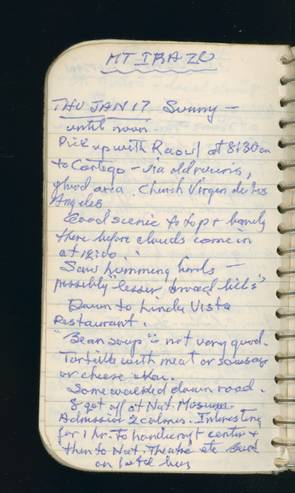 MT IRAZU
THU JAN 17 Sunny –
until noon
Pick up with Raoul at 8:30 am
to Cartego – via old ruins,
flood area. Church Virgen de los
Angeles
Good scenic to top + barely
there before clouds come in
at
Saw humming birds –
possibly "lesser broad bills"
Down to Linda Vista
Restaurant.
"Bean soup" – not very good.
Tortilla with meat or sausage
or cheese okay.
Some walked down road.
& got off at Nat. Museum.
Admission 2 colones. Interesting
for 1 hr. To handicraft center +
then to Nat. Theatre etc. back
on hotel bus